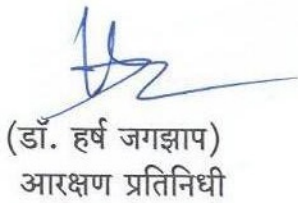 (डॉ. हर्ष जगझाप)
आरक्षण प्रतिनिधी